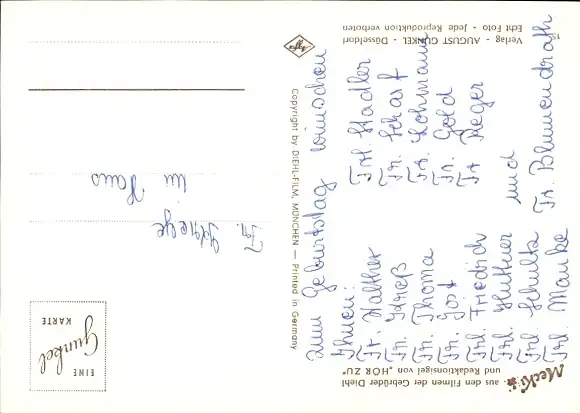 Mecki
aus den Filmen der Gebrüder Diehl
und Redaktionsigel von „HÖR ZU"
Zum Geburtstag wünschen
Ihnen:
Fr. Walther
Fr. Thoma
Fr. Jost
Frl. Friedrich
Frl. Huttner
Frl. Schultz
Frl. Manke
Frl. Stadler
Fr. Scharf
Fr. Lohmann
Fr. Gold
Fr. Reger
und
Fr. Blumendrath
Copyright by DIEHL-FILM, MÜNCHEN — Printed in Germany
EINE
Gunkel
KARTE
Fr.
im Haus
Agfa
Verlag - AUGUST GUNKEL - Düsseldorf
Echt Foto - Jede Reproduktion verboten